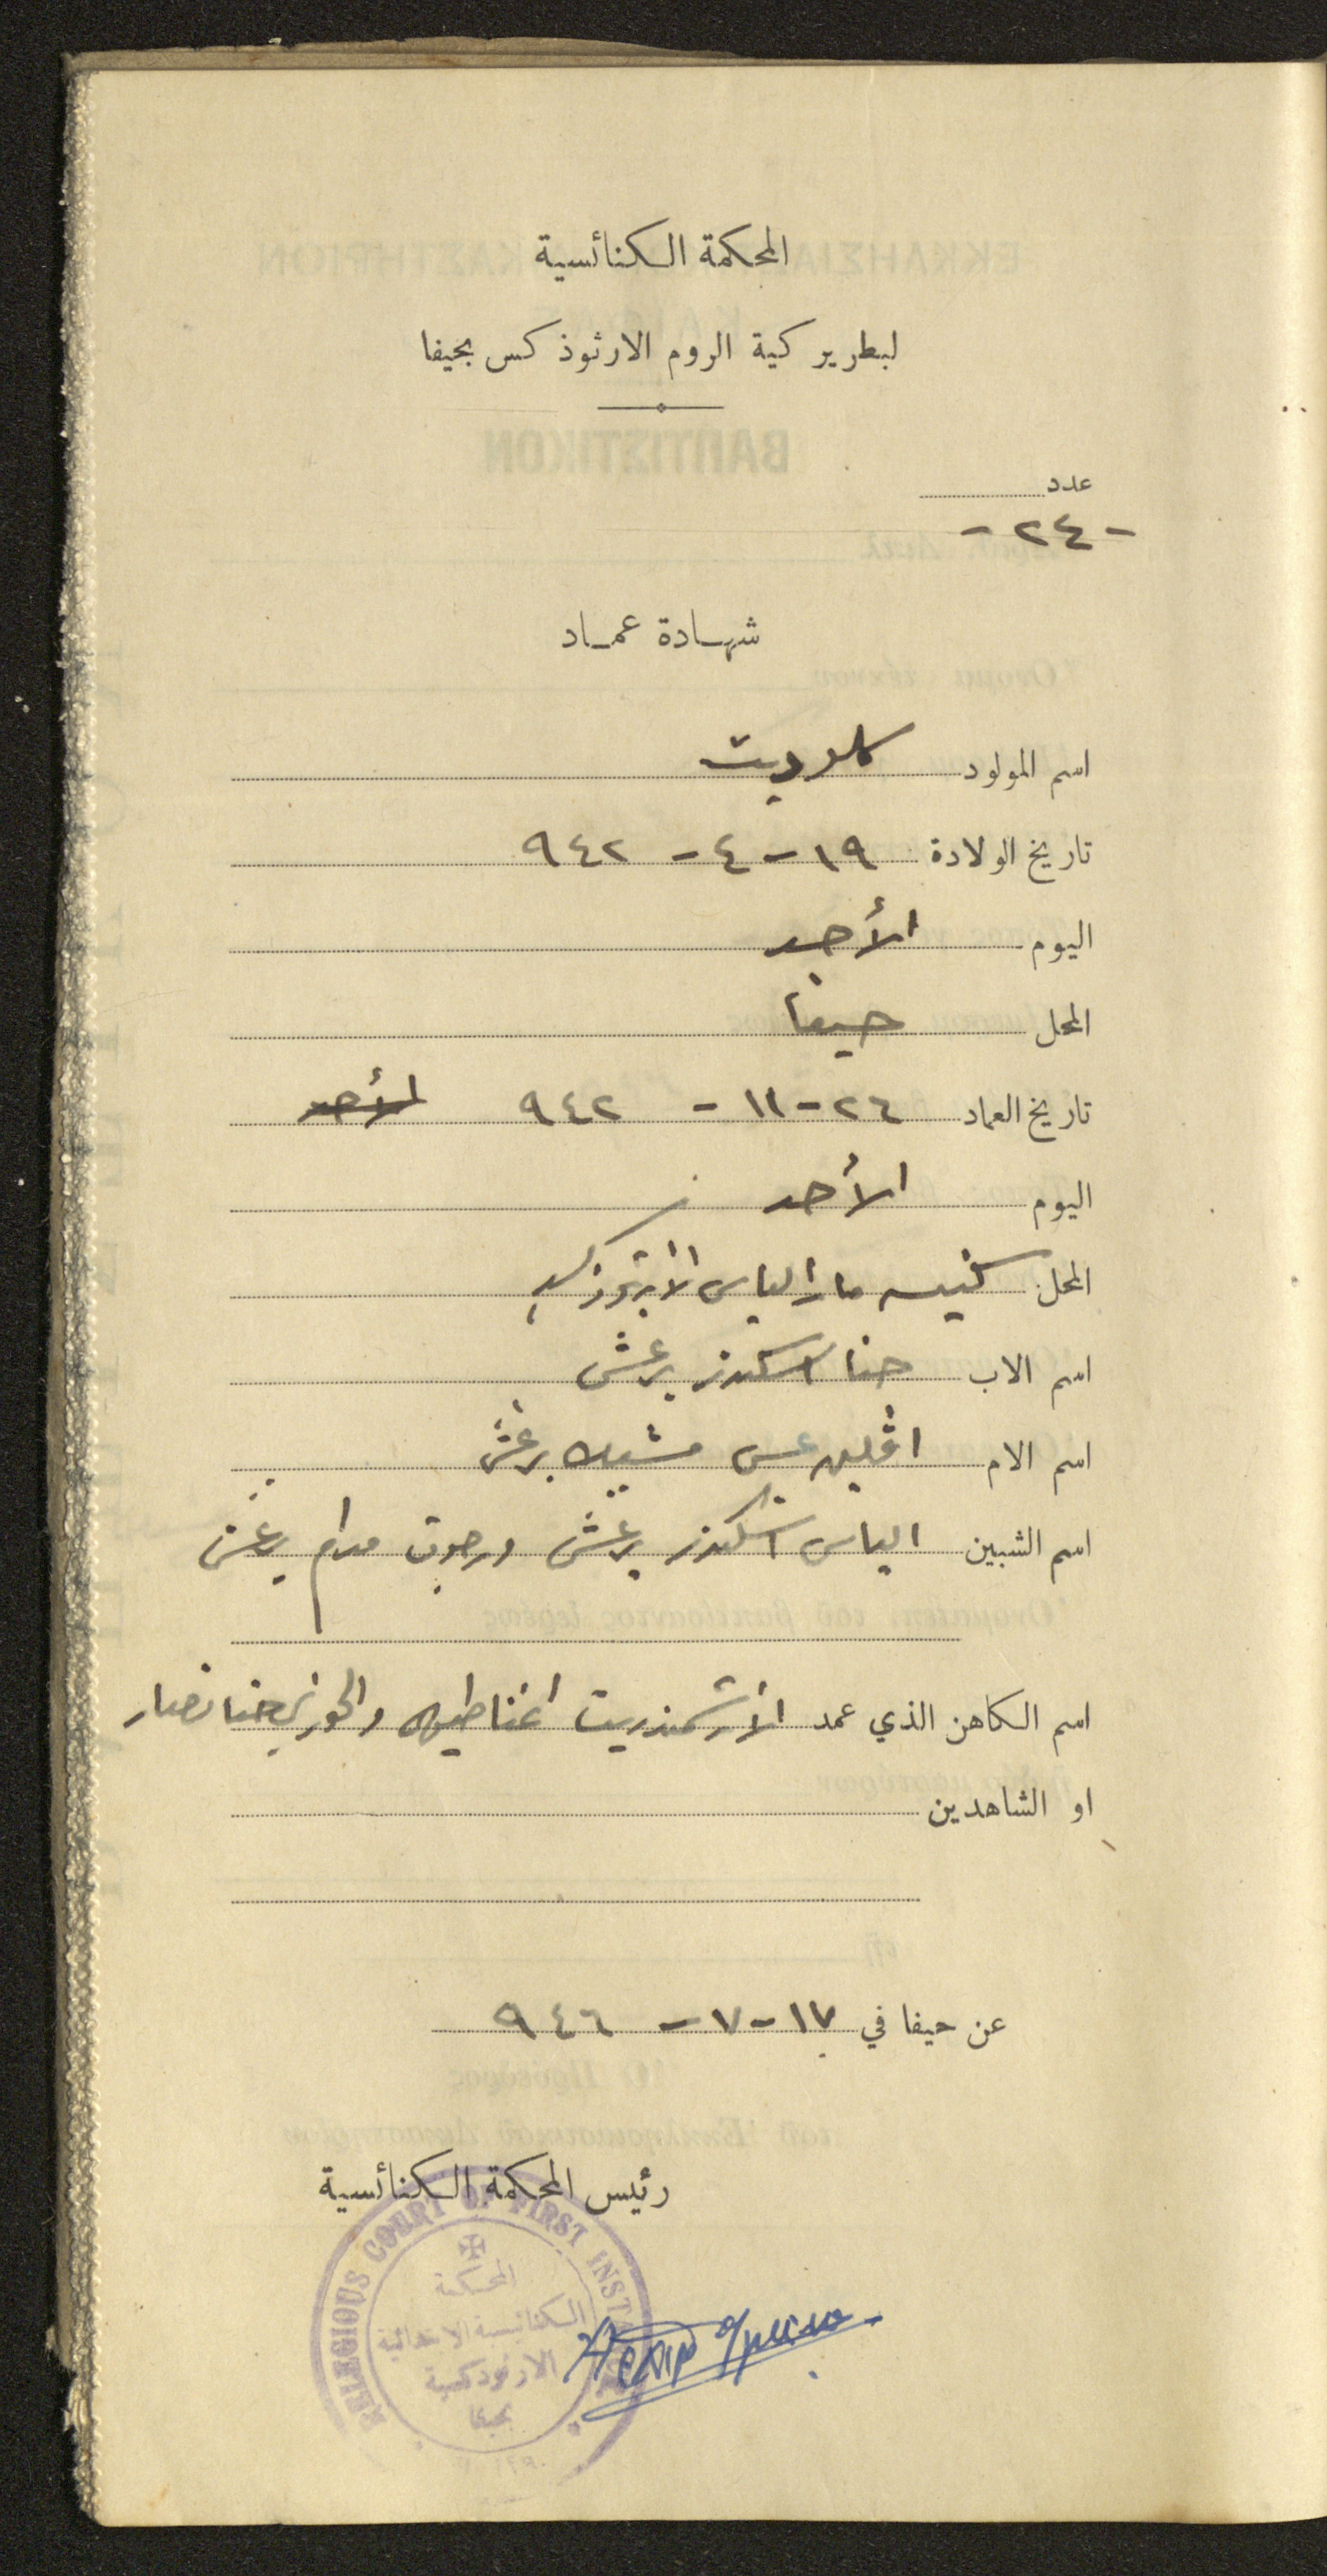 المحكمة الكنائسية
لبطريركية الروم الارثوذكس بحيفا
عدد
- ٢٤ -
شهادة عماد
اسم المولود كلوديت
تاريخ الولادة ١٩ - ٤ - ٩٤٢
اليوم الأحد
المحل حيفا
تاريخ العماد ٢٦ - ١١ - ٩٤٢ الأحد
اليوم الأحد
المحل كنيسه مار الياس الأرثوذكسيه
اسم الاب حنا اسكندر برغش
اسم الام برغش
اسم الشبين الياس اسكندر برغش مدام برغش
اسم الكاهن الذي عمد الأرشمندريت اغناطيوس والخوري حنا نصار
او الشاهدين
عن حيفا في ١٧ - ٧ - ٩٤٦
رئيس المحكمة الكنائسية
RELIGIOUS COURT OF FIRST INSTA
المحكمة
الكنائسية الابتدائية
الارثوذكسية
بحيفا